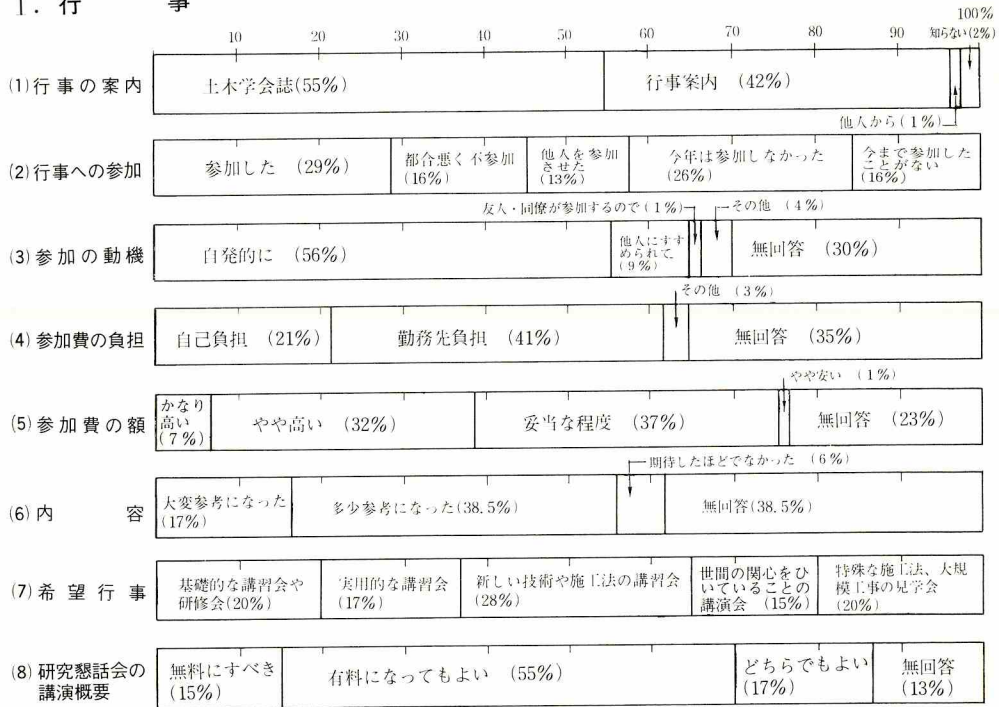 1. 行 事
100%
10 20 30 40 50 60 70 80 90 知らない(2%)
(1)行事の案内 土木学会誌(55%) 行事案内 (42%)
他人から(1%)
(2)行事への参加 参加した (29%)
都合悪く不参加
(16%)
他人を参加
させた
(13%)
今年は参加しなかった
(26%)
今まで参加した
ことがない
(16%)
友人・同僚が参加するので(1%) その他 (4%)
(3)参加の動機 自発的に (56%)
他人にすす
められて
(9%)
無回答 (30%)
その他 (3%)
(4)参加費の負担 自己負担 (21%) 勤務先負担 (41%) 無回答 (35%)
やや安い (1%)
(5)参加費の額
かなり
高い
(7%)
やや高い (32%) 妥当な程度 (37%) 無回答 (23%)
期待したほどでなかった (6%)
(6)内 容
大変参考になった
(17%)
多少参考になった(38.5%) 無回答(38.5%)
(7)希望行事
基礎的な講習会や
研修会(20%)
実用的な講習会
(17%)
新しい技術や施工法の講習会
(28%)
世間の関心をひ
いていることの
講演会 (15%)
特殊な施工法、大規
模工事の見学会
(20%)
(8)研究懇話会の
講演概要
無料にすべき
(15%)
有料になってもよい (55%)
どちらでもよい
(17%)
無回答
(13%)